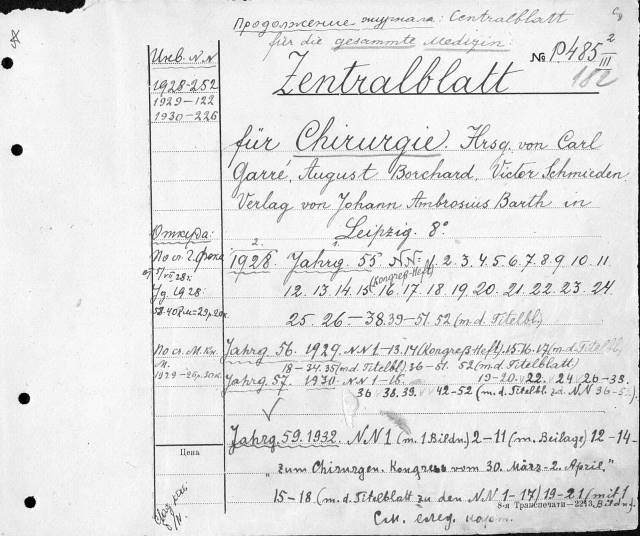 Продолжение журнала: Centralblatt
für die gesammte Medizin:
№ P485 2/III
182
Zentralblatt
für Chirurgie. Hrsg. von Carl
Garré, August Borchard, Victor Schmieden
Verlag von Johann Ambrosius Barth in
Leipzig. 8°.
Инв. N.N
1928-252
1929-122
1930-226
Откуда:
По сч. Г. Фока
1928:
2.
1928. Jahrg. 55. NN: 1. 2. 3. 4. 5. 6. 7. 8. 9. 10. 11
12. 13. 14. 15 (Kongreß-Heft) 16. 17. 18. 19. 20. 21. 22. 23. 24
25. 26-38. 39-51. 52 (m. d. Titelbl.)
По сч. М. Кн.
Jahrg. 56. 1929. NN 1-13. 14 (Kongreß Heft). 15. 16. 17 (m. d. Titelbl.)
18-34. 35 (m. d. Titelbl.) 36-51. 52 (m. d. Titelblatt)
Jahrg. 57. 1930. NN 1-18. 19-20. 22. 24 26-33.
36 38. 39. 42-52 (m. d. Titelbl. zd. NN 36-52).
Jahrg. 59. 1932. NN 1 (m. 1 Bildn.) 2-11 (m. Beilage) 12-14
"zum Chirurgen. Kongress vom 30. März-2. April."
15-18 (m. d. Titelblatt zu den NN 1-17) 19-21 (mit 1 Bildn.)
Цена
8-я Транспечати—2213.
См. след. карт.